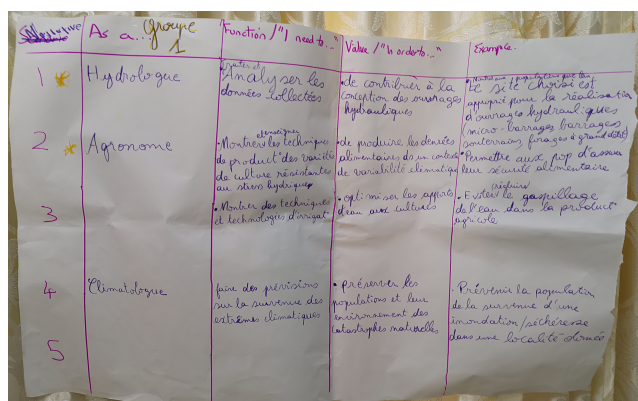 As a... Groupe 1
Function / "I need to..."
Value / "In order to..."
Example.
1
Hydrologue
Traiter et
Analyser les
données collectées
• de contribuer à la
conception des ouvrages
hydrauliques
que le
Le site choisi est
approprié pour la réalisation
d'ouvrages hydrauliques
micro-barrages barrages
souterrains forages à grand débit
2
Agronome
et enseigner
• Montrer les techniques
de product° des variétés
de culture résistantes
au stress hydrique
• de produire les denrées
alimentaires ds un contexte
de variabilité climatique
• Permettre aux pop d'assurer
leur sécurité alimentaire
3
• Montrer des techniques
et technologies d'irrigat°
• optimiser les apports
d'eau aux cultures
réduire
• Eviter le gaspillage
de l'eau dans la product°
agricole
4
Climatologue
faire des prévisions
sur la survenue des
extrêmes climatiques
• préserver les
populations et leur
environnement des
catastrophes naturelles
- Prévenir la population
de la survenue d'une
inondation/sécheresse
dans une localité donnée
5